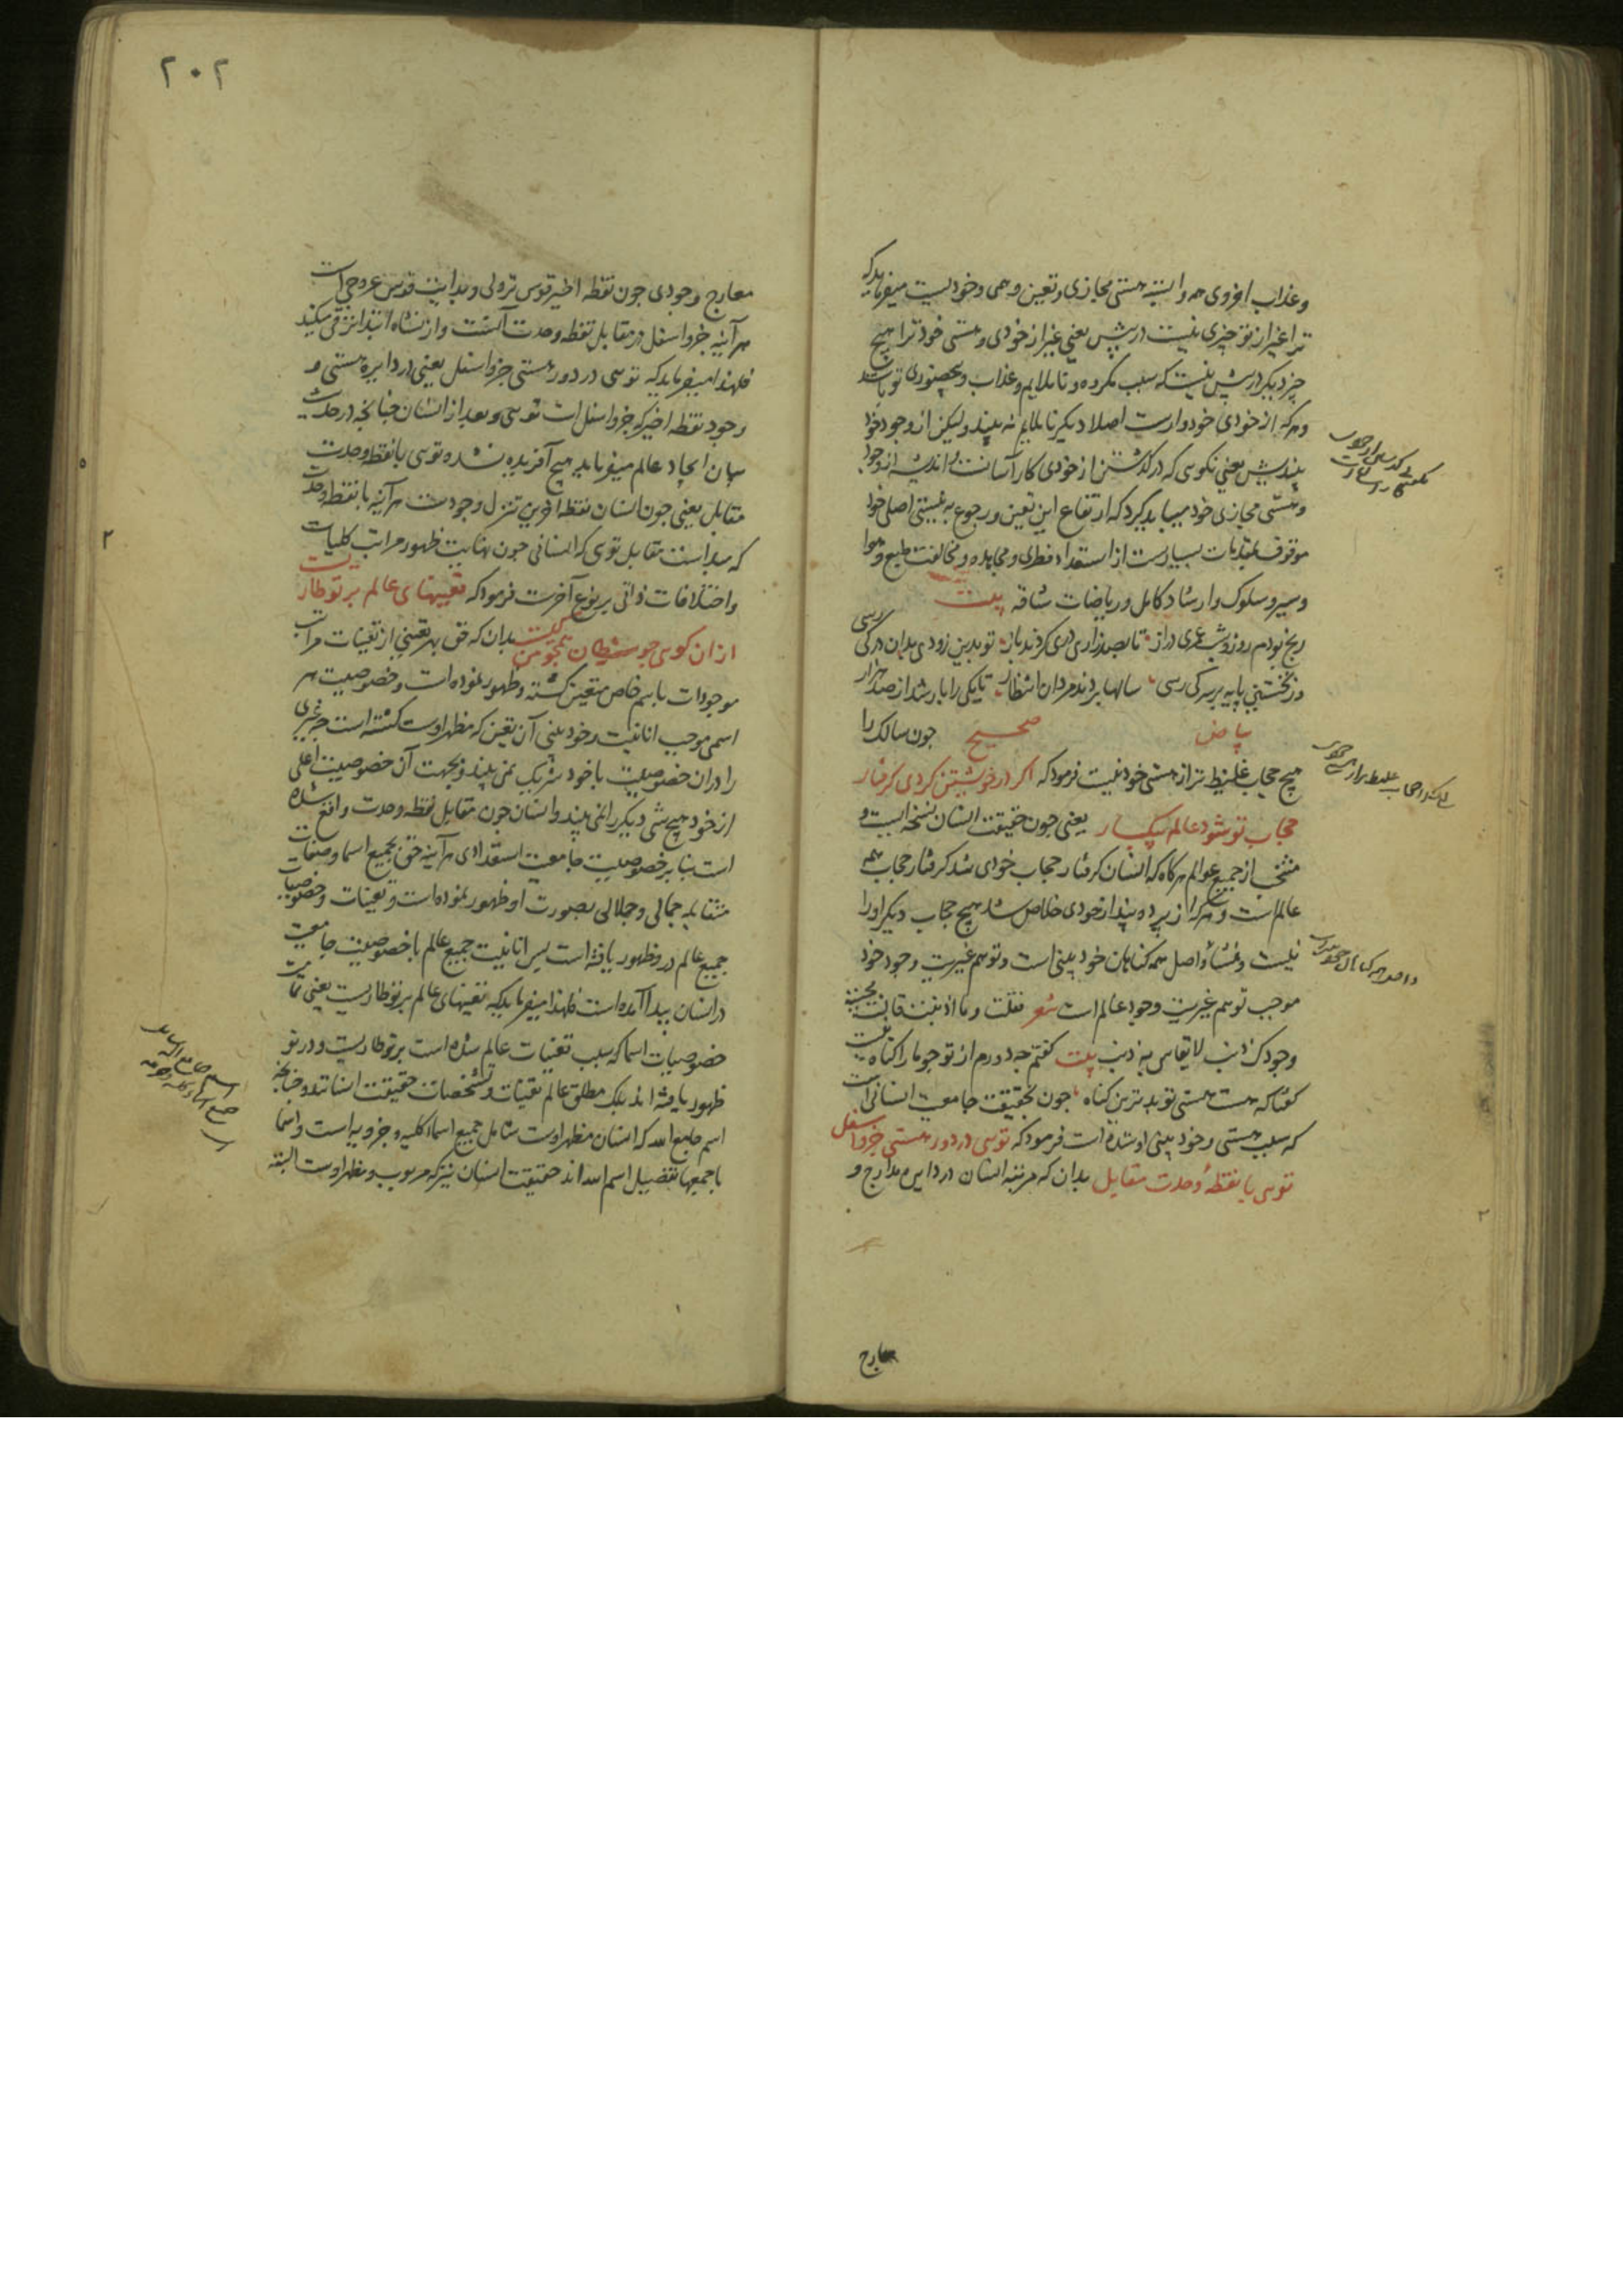 وعذاب اخروی همه وابسته هستی مجازی و تعین وهمی و خودیست میفرماید که
ترا غیر از تو چیزی نیست در پیش یعنی غیر از خودی و هستی خود ترا هیچ
چیز دیگر در پیش نیست که سبب مکروه و ناملایم و عذاب و بیحضوری تو باشد
وهرکه از خودی خود وارست اصلا دیگر ناملایم نه بیند ولیکن از وجود خود
بیندیش یعنی نگویی که در گذشتن از خودی کار آسانست و اندیشه از وجود
وهستی مجازی خود میباید کرد که ارتفاع این تعین و رجوع به نیستی اصلی خود
موقوف بمقدمات بسیارست از استعداد فطری و مجاهده و مخالفت طبع و هوا
وسیر و سلوک و ارشاد کامل و ریاضات شاقه بیت
رنج بردم روز و شب عمری دراز تا بصد زاری دری کردند باز تو بدین زودی بدان در کی رسی
در نخستین پایه بر سر کی رسی سالها بردند مردان انتظار تا یکی را بار شد از صد هزار
بیاض صحیح چون سالک را
هیچ حجاب غلیظ تر از هستی خود نیست فرمود که اگر در خویشتن کردی کرفتار
حجاب تو شود عالم بیکبار یعنی چون حقیقت انسان نسخه ایست و
منتخب از جمیع عوالم هرکاه که انسان کرفتار حجاب خودی شد کرفتار حجاب همه
عالم است و هرکه از پرده پندار خودی خلاص شد هیچ حجاب دیگر او را
نیست و منشأ و اصل همه کناهان خود بینی است و توهم غیریت وجود خود
موجب توهم غیریت وجود عالم است شعر فقلت وما اذنبت قالت مجیبة
وجودک ذنب لا یقاس به ذنب بیت کفتم چه درم از تو چو ما را کناه نیست
کفتا که هست هستی تو بدترین کناه چون بحقیقت جامعیت انسانی است
که سبب هستی و خود بینی او شده است فرمود که تویی در دور هستی جزو اسفل
تویی با نقطهٔ وحدت مقابل بدان که مرتبه انسان در دایره مدارج و
معارج
۲۰۲
معارج وجودی چون نقطه اخیر قوس نزولی و بدایت قوس عروجی است
هر آینه جزو اسفل در مقابل نقطه وحدت آنست و از نشاه ابتدا ترقی میکند
فلهذا میفرماید که تویی در دور هستی جزو اسفل یعنی در دایره هستی و
وجود نقطه اخیر که جزو اسفل است تویی و بعد از انسان چنانچه در حدیث
بیان ایجاد عالم میفرماید هیچ آفریده نشده تویی با نقطه وحدت
مقابل یعنی چون انسان نقطه آخرین تنزل وجودست هر آینه با نقطه وحدت
که مبدأست مقابل تویی که انسانی چون نهایت ظهور مراتب کلیات
واختلافات ذاتی بر نوع آخرست فرمود که تعینهای عالم بر تو طاریست
از ان کویی چو شیطان همچو من کیست بدان که حق بهر تعینی از تعینات مراتب
موجودات باسم خاص متعین کشته و ظهور نموده است و خصوصیت هر
اسمی موجب انانیت و خود بینی آن تعین که مظهر اوست کشته است چه غیری
را دران خصوصیت با خود شریک نمی بیند و بجهت آن خصوصیت اعلی
از خود هیچ شی دیگر را نمی بیند و انسان چون مقابل نقطه وحدت واقع شده
است بنا بر خصوصیت جامعیت استعدادی هر آینه حق بجمیع اسما و صفات
متقابله جمالی و جلالی بصورت او ظهور نموده است و تعینات و خصوصیات
جمیع عالم درو ظهور یافته است پس انانیت جمیع عالم با خصوصیت جامعیت
در انسان پیدا آمده است فلهذا میفرماید که تعینهای عالم بر تو طاریست یعنی تمامیت
خصوصیات اسما که سبب تعینات عالم شده است بر تو طاریست و در تو
ظهور یافته اند بلک مطلق عالم تعینات و تشخصات حقیقت انسانند و چنانچه
اسم جامع الله که انسان مظهر اوست شامل جمیع اسماء کلیه و جزویه است و اسما
باجمعها تفصیل اسم الله اند حقیقت انسان نیز که مربوب و مظهر اوست البته